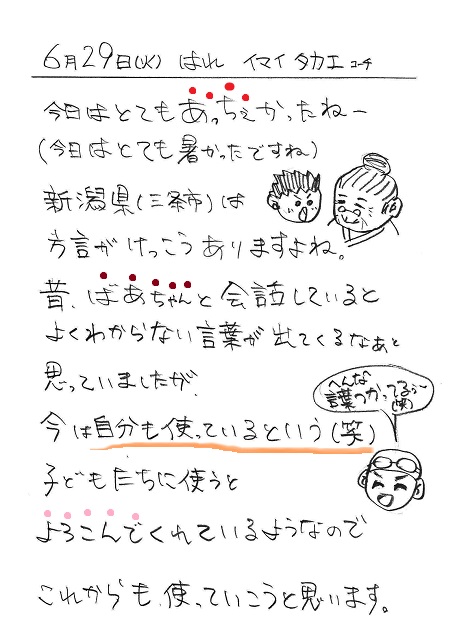 6月29日(火) はれ イマイ タカエ コーチ
今日はとてもあっちぇかったねー
(今日はとても暑かったですね)
新潟県(三条市)は
方言がけっこうありますよね。
昔、ばあちゃんと会話していると
よくわからない言葉が出てくるなぁと
思っていましたが、
へんな
言葉つかってるぅ〜
(笑)
今は自分も使っているという(笑)
子どもたちに使うと
よろこんでくれているようなので
これからも、使っていこうと思います。